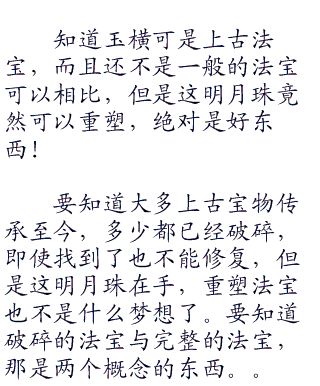 知道玉横可是上古法
宝，而且还不是一般的法宝
可以相比，但是这明月珠竟
然可以重塑，绝对是好东
西！
要知道大多上古宝物传
承至今，多少都已经破碎，
即使找到了也不能修复，但
是这明月珠在手，重塑法宝
也不是什么梦想了。要知道
破碎的法宝与完整的法宝，
那是两个概念的东西。。